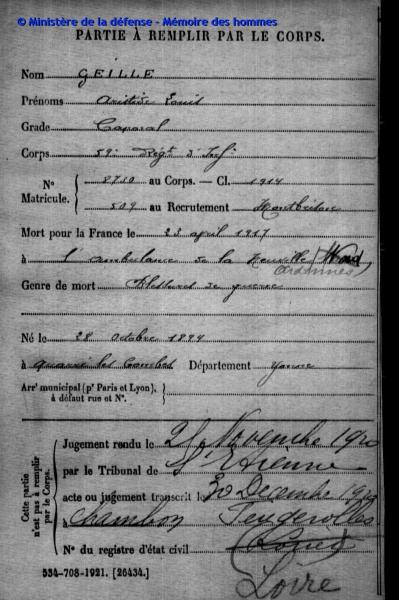 © Ministère de la défense - Mémoire des hommes
PARTIE À REMPLIR PAR LE CORPS.
Nom GEILLE
Prénoms Aristide Louis
Grade Caporal
Corps 59e Régt d'Infie
N° 8710 au Corps. — Cl. 1914
Matricule. 509 au Recrutement Montbrison
Mort pour la France le 23 avril 1917
à l'ambulance de la Neuville
Ardennes
Genre de mort Blessures de guerre
Né le 28 octobre 1894
à Quarré les Tombes Département Yonne
Arr' municipal (p' Paris et Lyon),
à défaut rue et N°.
Cette partie
n'est pas à remplir
par le Corps.
Jugement rendu le Novembre 1920
par le Tribunal de St Etienne
acte ou jugement transcrit le 30 Décembre 1920
à Chambon Feugerolles
N° du registre d'état civil
Loire
534-708-1921. [26434.]